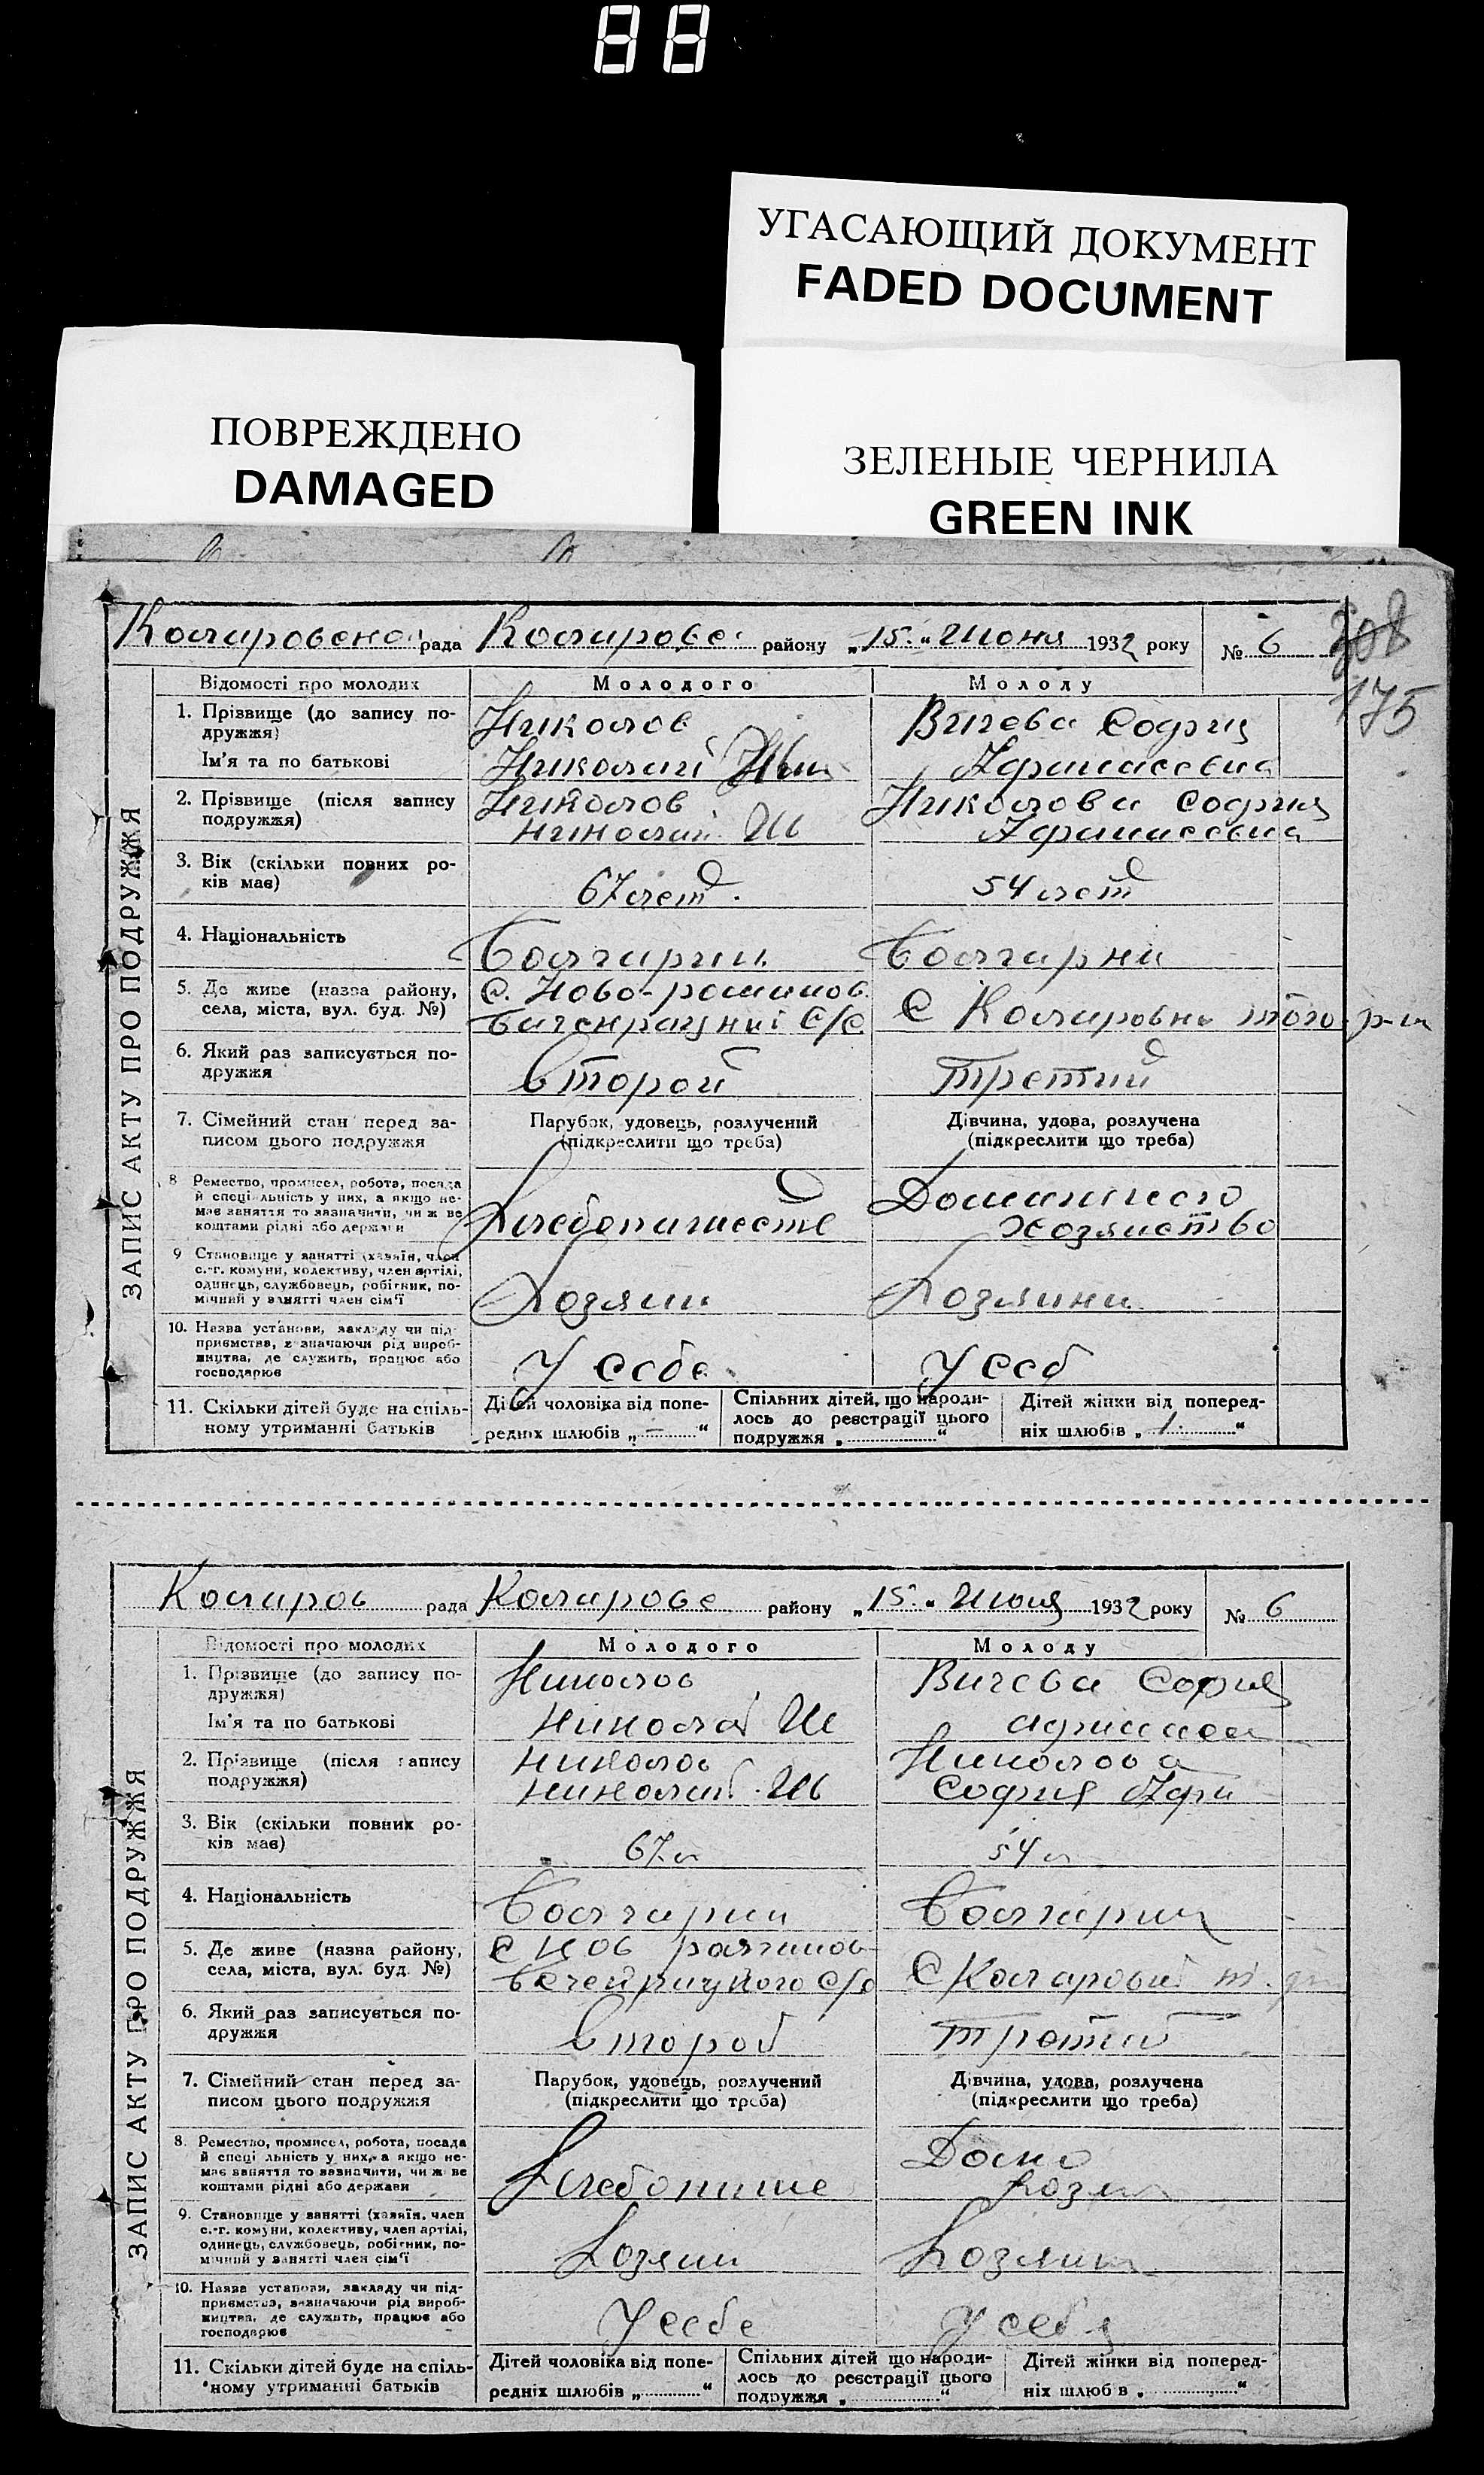 88
УГАСАЮЩИЙ ДОКУМЕНТ
FADED DOCUMENT
ПОВРЕЖДЕНО
DAMAGED
ЗЕЛЕНЫЕ ЧЕРНИЛА
GREEN INK
308
175
рада району „15.“ Июня 1932 року № 6
ЗАПИС АКТУ ПРО ПОДРУЖЖЯ
Відомості про молодих Молодого Молоду
1. Прізвище (до запису подружжя) Николов Вичева София
Ім'я та по батькові Николай Афанасевна
2. Прізвище (після запису подружжя) Николов Николай Ив Николова София Афанасевна
3. Вік (скільки повних років має) 67 лет. 54 лет
4. Національність Болгарин Болгарка
5. Де живе (назва району, села, міста, вул. буд. №) с. Ново- с/с С того р-на
6. Який раз записується подружжя второй третий
7. Сімейний стан перед записом цього подружжя Парубок, удовець, розлучений (підкреслити що треба) Дівчина, удова, розлучена (підкреслити що треба)
8 Ремество, промисел, робота, посада й спеціальність у них, а якщо немає заняття то зазначити, чи живе коштами рідні або держави Домашнего хозяйство
9 Становище у занятті (хазяїн, член с.-г. комуни, колективу, член артілі, одинець, службовець, робітник, помічний у занятті член сім'ї Хозяин
10. Назва установи, закладу чи підприємства, зазначаючи рід виробництва, де служить, працює або господарює У себе У себ
11. Скільки дітей буде на спільному утриманні батьків Дітей чоловіка від попередніх шлюбів „ — “ Спільних дітей, що народилось до реєстрації цього подружжя „ “ Дітей жінки від попередніх шлюбів „ 1 “
рада району „15.“ 1932 року № 6
ЗАПИС АКТУ ПРО ПОДРУЖЖЯ
Відомості про молодих Молодого Молоду
1. Прізвище (до запису подружжя) Николов Вичева София
Ім'я та по батькові Николай
2. Прізвище (після запису подружжя) Николов Николай Ив Николова София Афа
3. Вік (скільки повних років має) 67 л 54 л
4. Національність Болгарин
5. Де живе (назва району, села, міста, вул. буд. №) с Нов с/с С
6. Який раз записується подружжя второй третий
7. Сімейний стан перед записом цього подружжя Парубок, удовець, розлучений (підкреслити що треба) Дівчина, удова, розлучена (підкреслити що треба)
8. Ремество, промисел, робота, посада й спеціальність у них, а якщо немає заняття то зазначити, чи живе коштами рідні або держави
9. Становище у занятті (хазяїн, член с.-г. комуни, колективу, член артілі, одинець, службовець, робітник, помічний у занятті член сім'ї Хозяин
10. Назва установи, закладу чи підприємства, зазначаючи рід виробництва, де служить, працює або господарює У себе У себя
11. Скільки дітей буде на спільному утриманні батьків Дітей чоловіка від попередніх шлюбів „ “ Спільних дітей що народилось до реєстрації цього подружжя „ “ Дітей жінки від попередніх шлюбів „ “